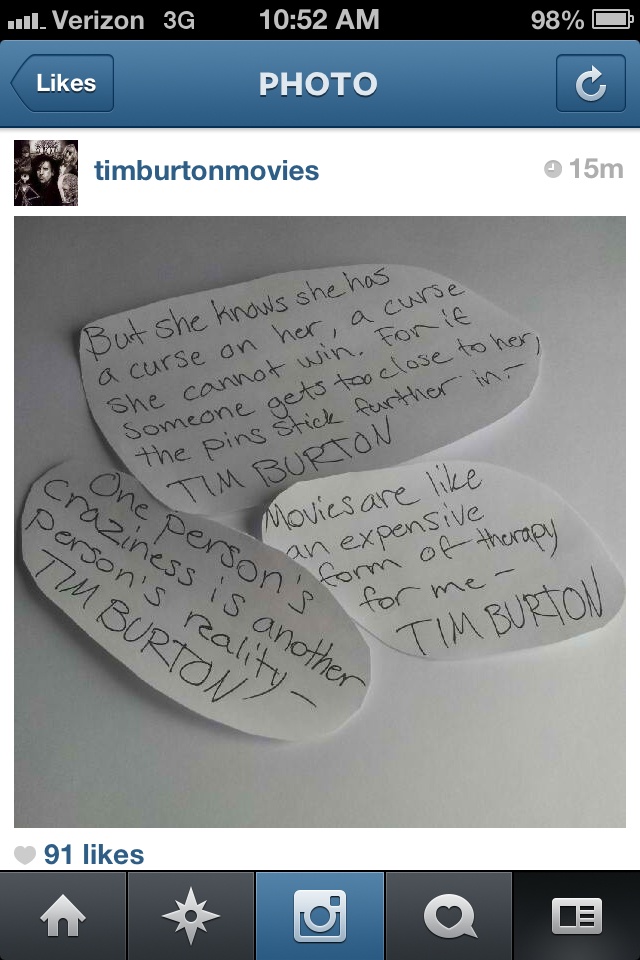 Verizon 3G 10:52 AM 98%
Likes PHOTO
timburtonmovies 15m
But she knows she has
a curse on her, a curse
she cannot win. For if
someone gets too close to her,
the pins stick further in.-
TIM BURTON
One person's
craziness is another
person's reality-
TIM BURTON
Movies are like
an expensive
form of therapy
for me-
TIM BURTON
91 likes